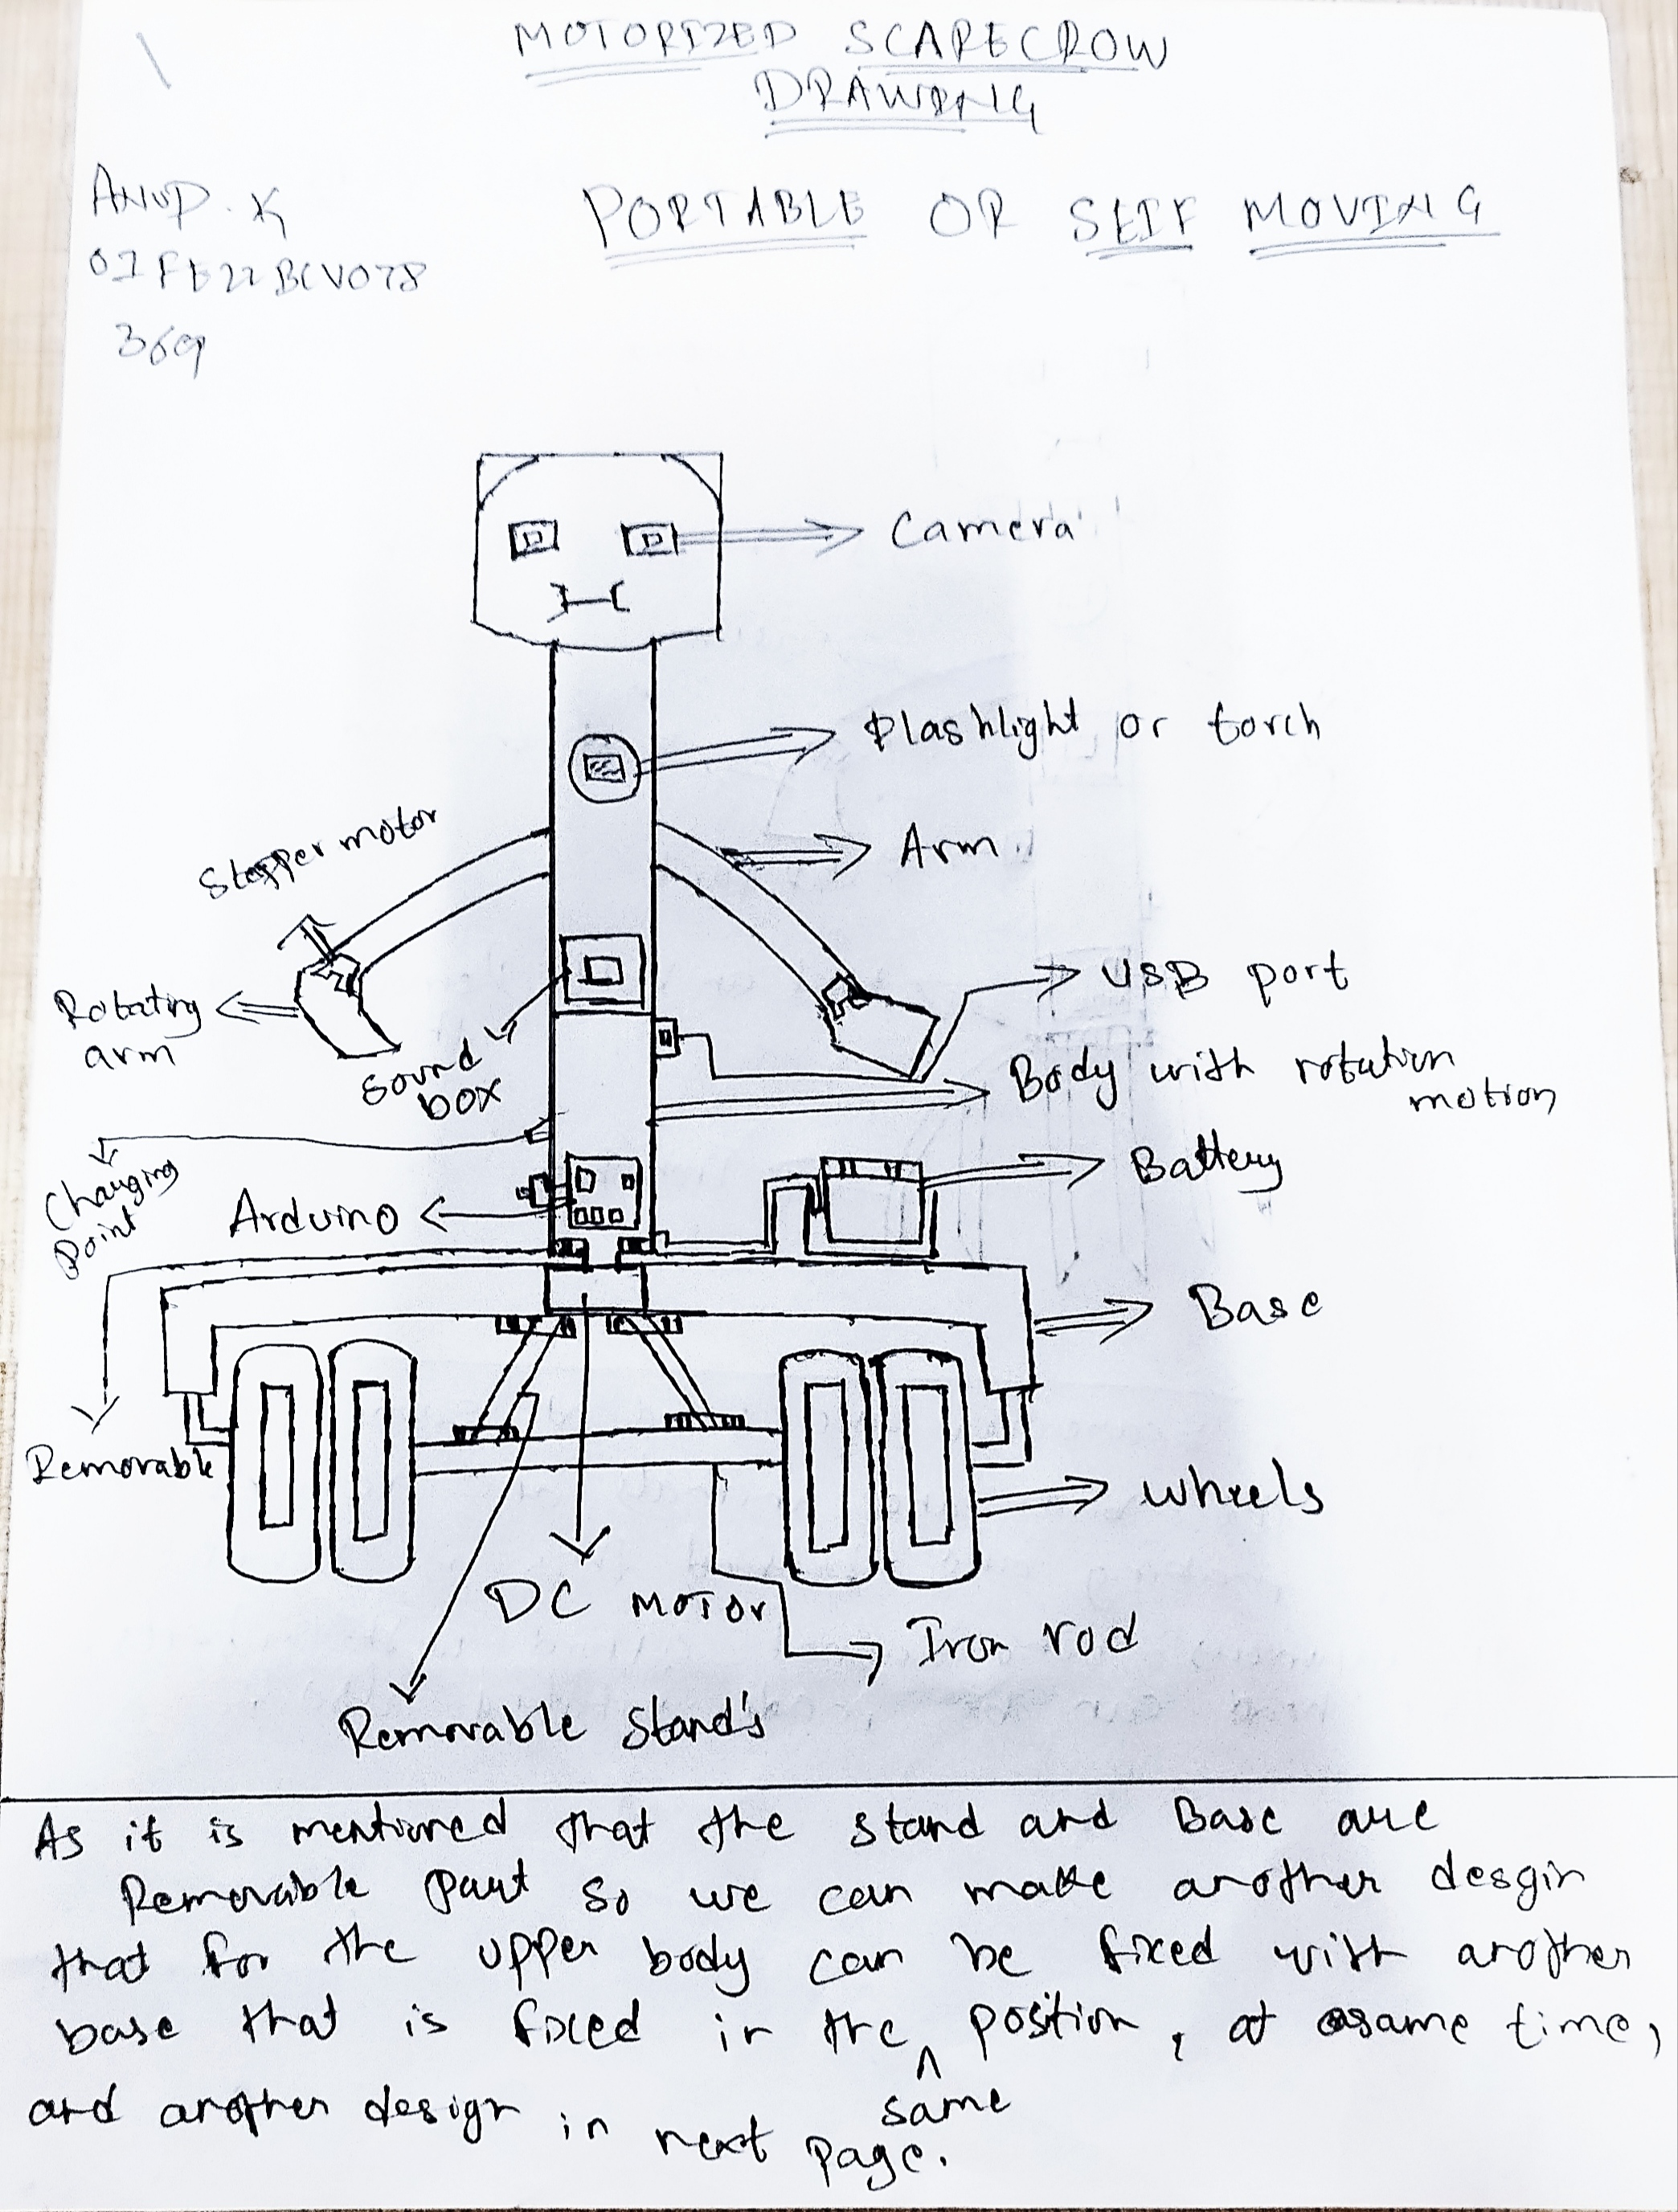 MOTORIZED SCARECROW
DRAWING
Anup. K
01FE22BCV078
369
PORTABLE OR SELF MOVING
Camera
flashlight or torch
Stepper motor
Arm
USB port
Rotating
arm
Sound
box
Body with rotation
motion
Charging
Point
Battery
Arduino
Base
Removable
Wheels
DC MOTOR
Iron rod
Removable Stand's
As it is mentioned that the stand and Base are
Removable part so we can make another desgin
that for the upper body can be fixed with another
base that is fixed in the same position, at same time,
and another design in next page.